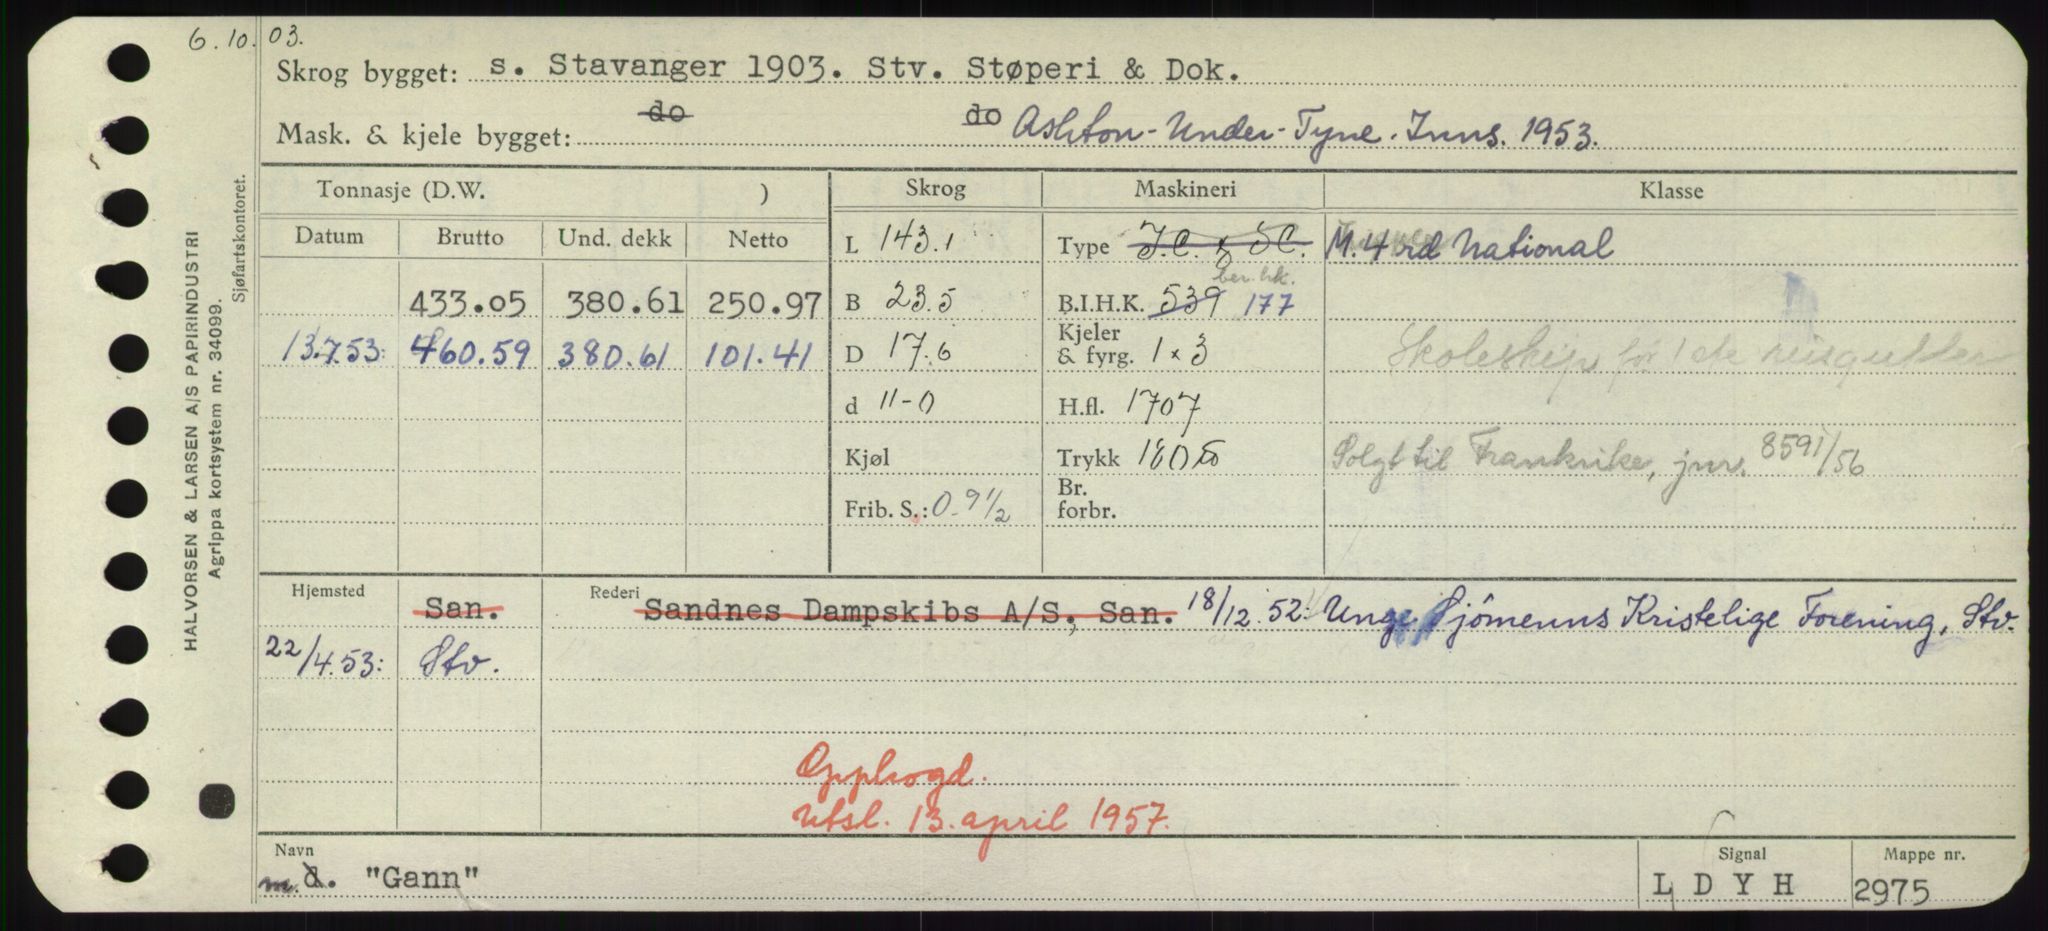 6.10.03.
Skrog bygget: s. Stavanger 1903. Stv. Støperi & Dok.
Mask. & kjele bygget: do do Ashton-Under-Tyne. Inns. 1953.
Tonnasje (D.W. ) Skrog Maskineri Klasse
Datum Brutto Und. dekk Netto L 143.1 Type M.4 National
433.05 380.61 250.97 B 23.5 B.I.H.K. 539 177 ber. hk.
13.7.53: 460.59 380.61 101.41 D 17.6 Kjeler & fyrg. 1 x 3 Skoleskip for
d 11-0 H.fl. 1707
Kjøl Trykk 180 Solgt til Frankrike, jnr. 8591/56
Frib. S.: 0-9 1/2 Br. forbr.
Hjemsted San. Rederi Sandnes Dampskibs A/S, San. 18/12.52: Unge Sjömenns Kristelige Forening, Stv.
22/4.53: Stv.
Opphogd.
Utsl. 13. april 1957.
Navn Signal Mappe nr.
m. d. "Gann" L D Y H 2975
HALVORSEN & LARSEN A/S PAPIRINDUSTRI
Agrippa kortsystem nr. 34099.
Sjøfartskontoret.